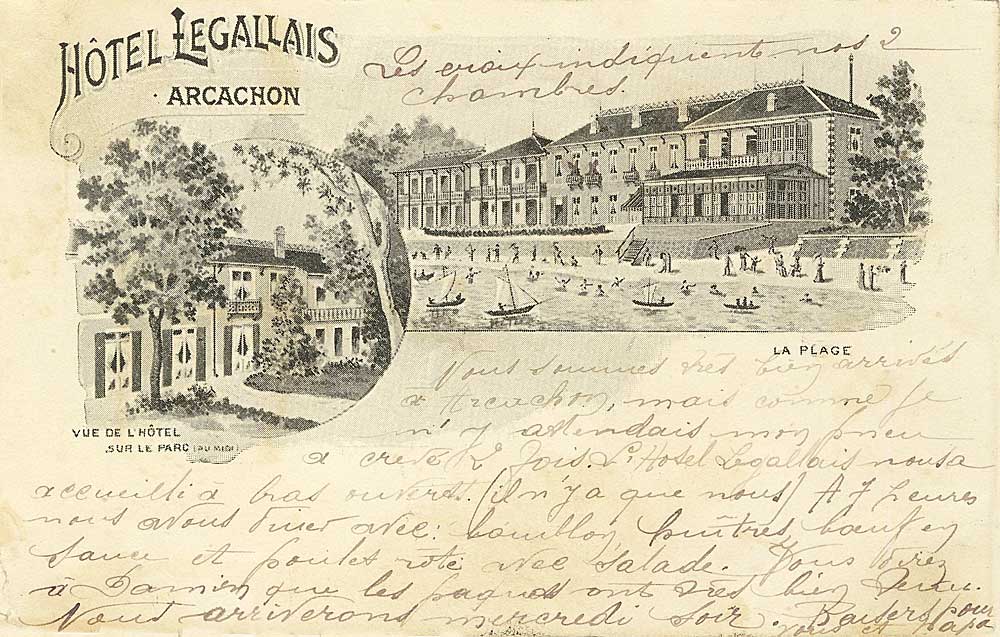 HÔTEL LEGALLAIS
ARCACHON
Les croix indiquent nos 2
chambres.
LA PLAGE
VUE DE L'HÔTEL
SUR LE PARC (AU MIDI)
Nous sommes très bien arrivés
à Arcachon, mais comme je
m'y attendais mon pneu
a crevé 2 fois. L'Hotel Legallais nous a
accueilli à bras ouvert. (il n'y a que nous) A 7 heures
nous avons diner avec: bouillon, huîtres, bœuf en
sauce et poulet roti avec salade. Vous direz
à Damien que les paquets ont très bien tenu.
Nous arriverons mercredi soir. Baisers pour
vous et papa